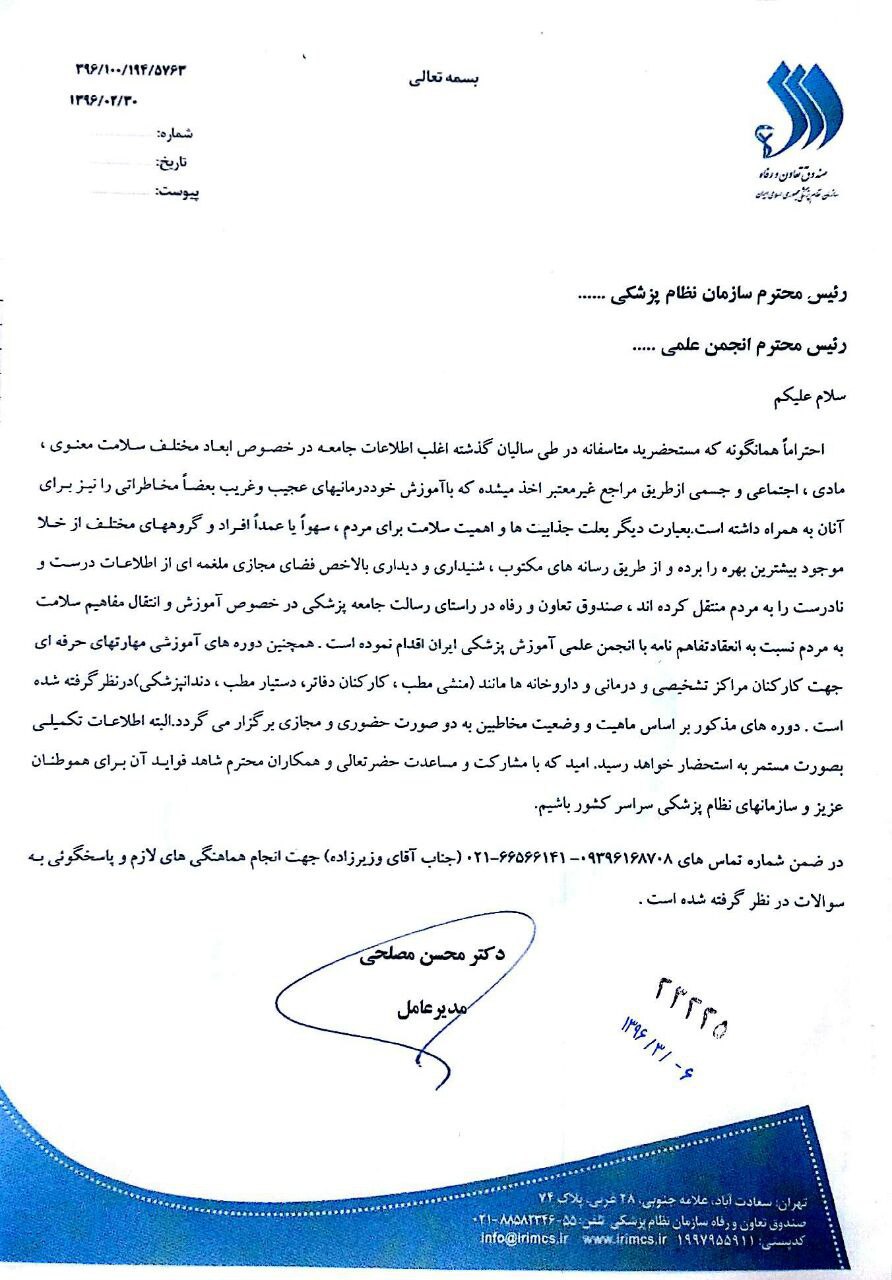 بسمه تعالی
۳۹۶/۱۰۰/۱۹۴/۵۷۶۳
۱۳۹۶/۰۲/۳۰
شماره:
تاریخ:
پیوست:
صندوق تعاون و رفاه
سازمان نظام پزشکی جمهوری اسلامی ایران
رئیس محترم سازمان نظام پزشکی ......
رئیس محترم انجمن علمی .....
سلام علیکم
احتراماً همانگونه که مستحضرید متاسفانه در طی سالیان گذشته اغلب اطلاعات جامعه در خصوص ابعاد مختلف سلامت معنوی ،
مادی ، اجتماعی و جسمی ازطریق مراجع غیرمعتبر اخذ میشده که باآموزش خوددرمانیهای عجیب وغریب بعضاً مخاطراتی را نیز برای
آنان به همراه داشته است.بعبارت دیگر بعلت جذابیت ها و اهمیت سلامت برای مردم ، سهواً یا عمداً افراد و گروههای مختلف از خلا
موجود بیشترین بهره را برده و از طریق رسانه های مکتوب ، شنیداری و دیداری بالاخص فضای مجازی ملغمه ای از اطلاعات درست و
نادرست را به مردم منتقل کرده اند ، صندوق تعاون و رفاه در راستای رسالت جامعه پزشکی در خصوص آموزش و انتقال مفاهیم سلامت
به مردم نسبت به انعقادتفاهم نامه با انجمن علمی آموزش پزشکی ایران اقدام نموده است . همچنین دوره های آموزشی مهارتهای حرفه ای
جهت کارکنان مراکز تشخیصی و درمانی و داروخانه ها مانند (منشی مطب ، کارکنان دفاتر، دستیار مطب ، دندانپزشکی)درنظرگرفته شده
است . دوره های مذکور بر اساس ماهیت و وضعیت مخاطبین به دو صورت حضوری و مجازی برگزار می گردد.البته اطلاعات تکمیلی
بصورت مستمر به استحضار خواهد رسید. امید که با مشارکت و مساعدت حضرتعالی و همکاران محترم شاهد فواید آن برای هموطنان
عزیز و سازمانهای نظام پزشکی سراسر کشور باشیم.
در ضمن شماره تماس های ۰۹۳۹۶۱۶۸۷۰۸- ۰۲۱-۶۶۵۶۶۱۴۱ (جناب آقای وزیرزاده) جهت انجام هماهنگی های لازم و پاسخگوئی به
سوالات در نظر گرفته شده است .
دکتر محسن مصلحی
مدیرعامل
۲۳۲۲۵
۱۳۹۶/۳/۰۶
تهران: سعادت آباد، علامه جنوبی، ۲۸ غربی، پلاک ۷۴
صندوق تعاون و رفاه سازمان نظام پزشکی تلفن: ۵۵-۸۸۵۸۲۳۴۶-۰۲۱
کدپستی: ۱۹۹۷۹۵۵۹۱۱ www.irimcs.ir info@irimcs.ir